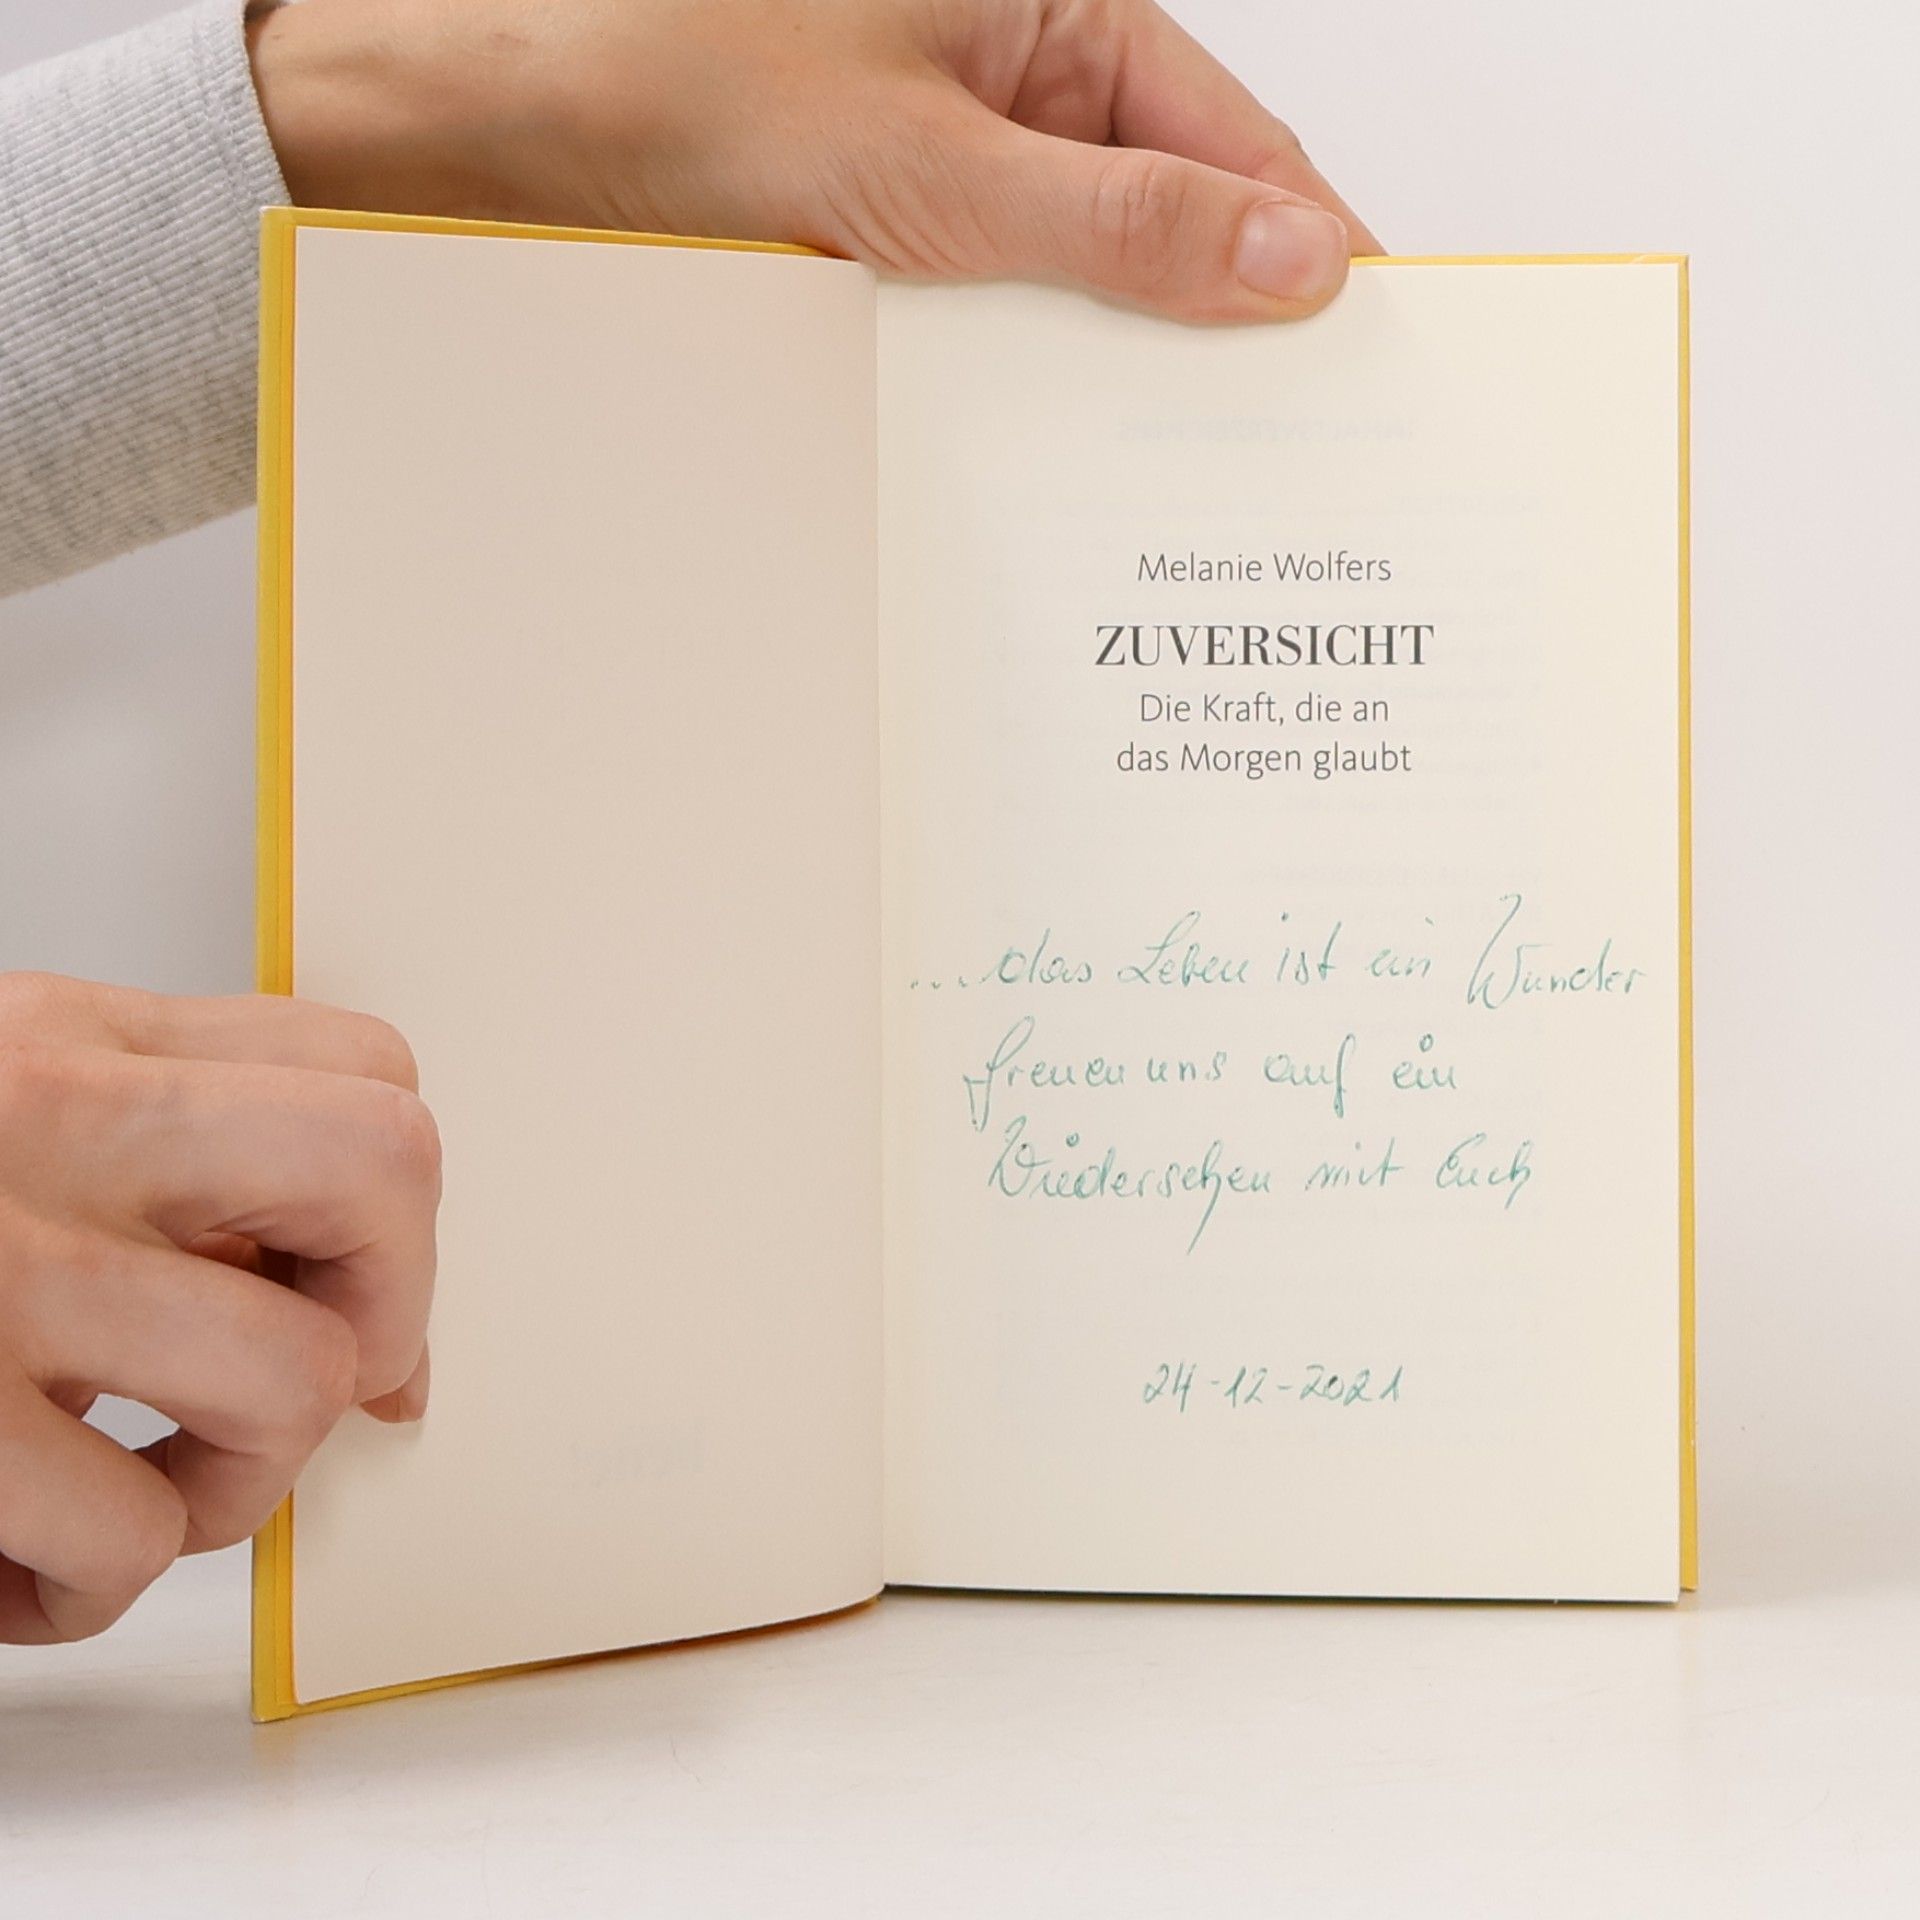 Melanie Wolfers
ZUVERSICHT
Die Kraft, die an
das Morgen glaubt
...das Leben ist ein Wunder
freuen uns auf ein
Wiedersehen mit Euch
24-12-2021